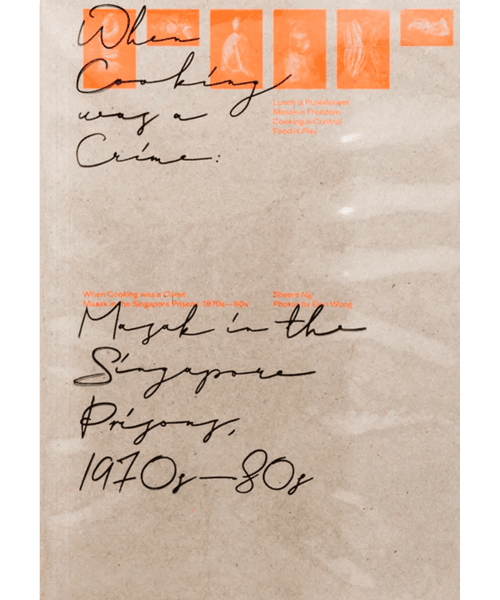 When
Cooking
was a
Crime:
Lunch is Punishment
Masak is Freedom
Cooking is Control
Food is Play
When Cooking was a Crime:
Masak in the Singapore Prisons, 1970s—80s
Sheere Ng
Photos by Don Wong
Masak in the
Singapore
Prisons,
1970s—80s